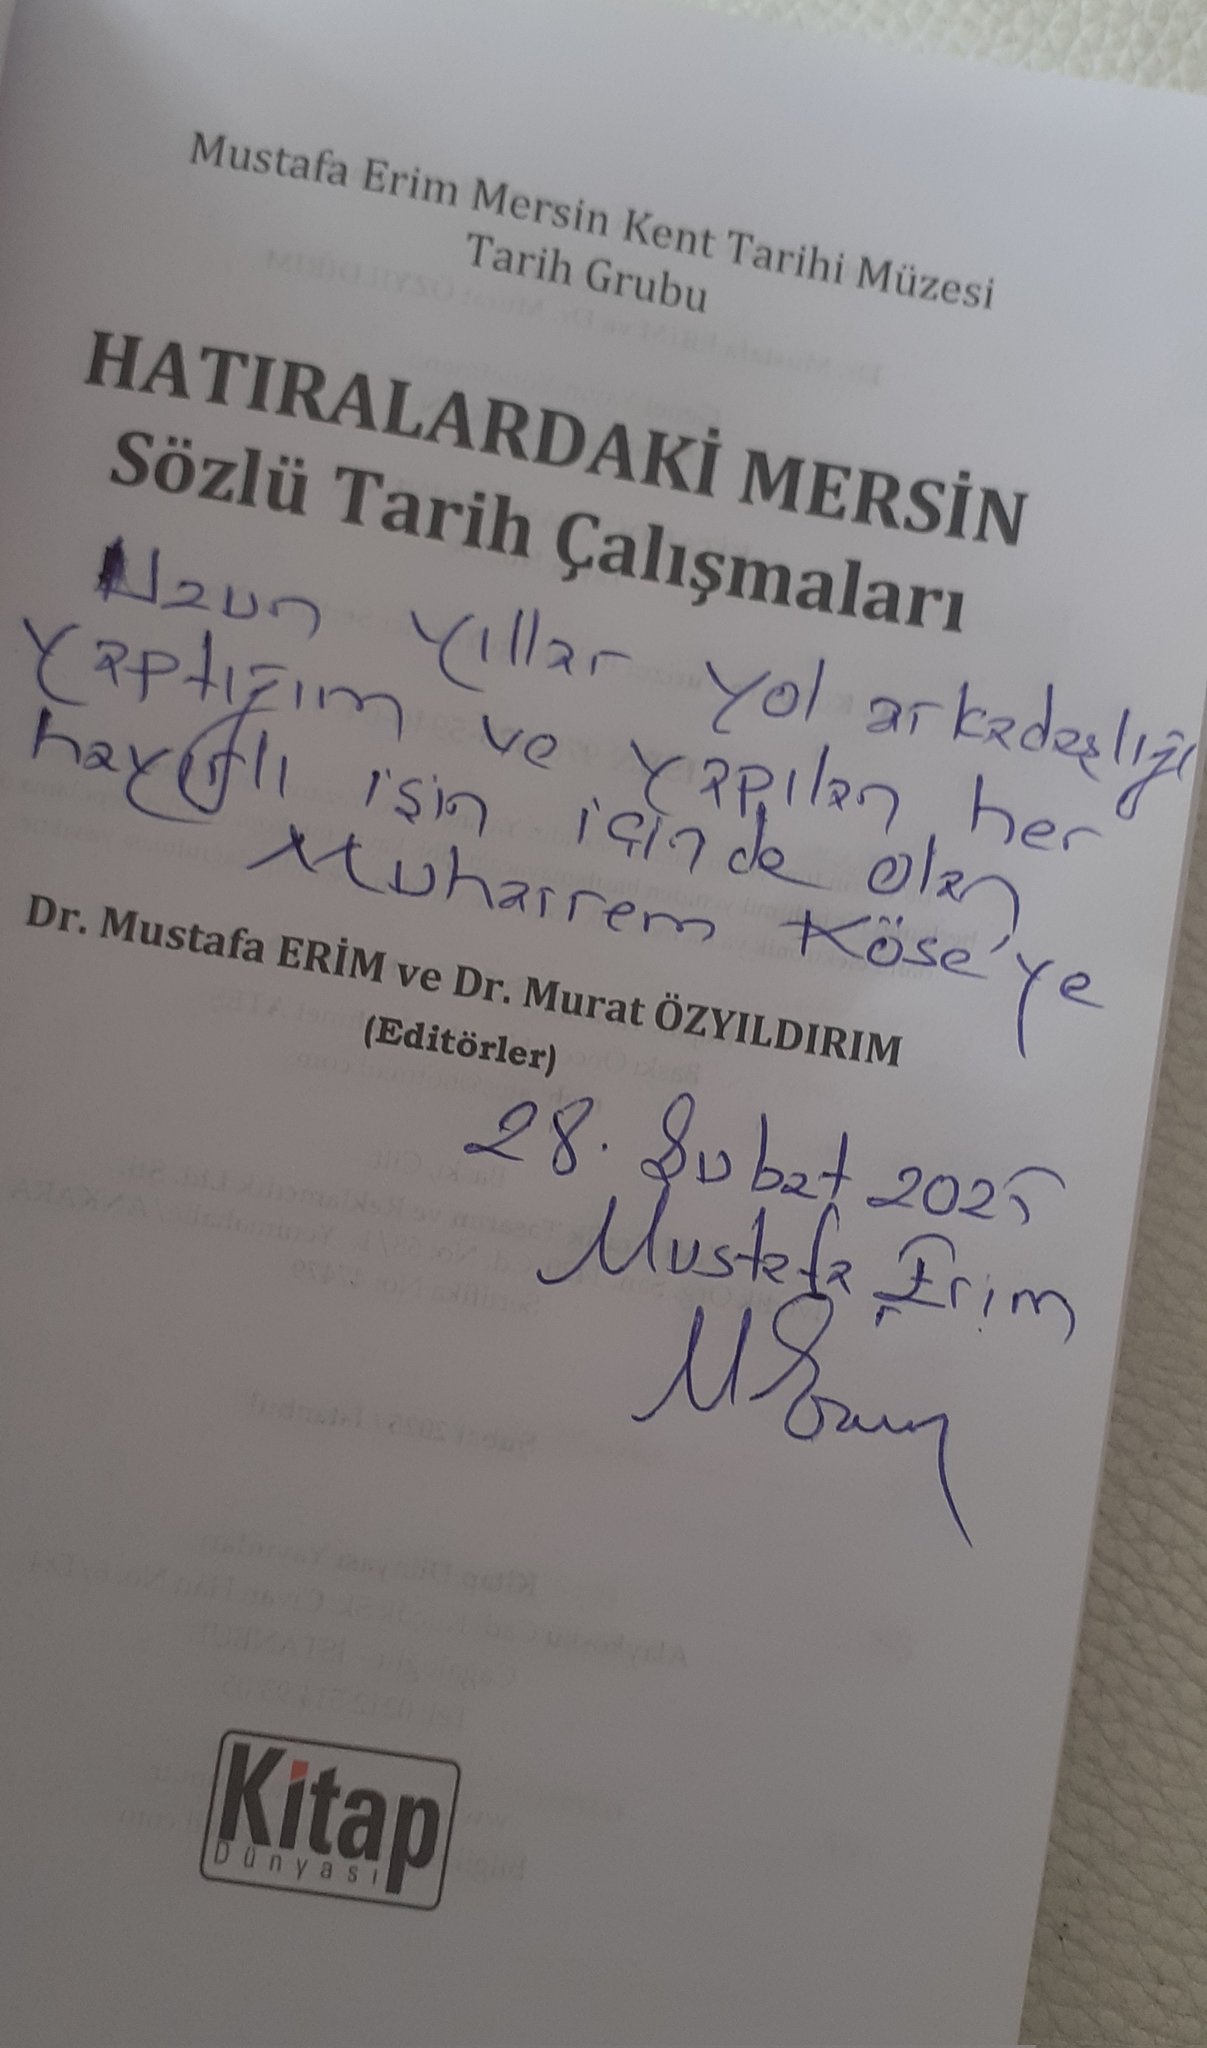 Mustafa Erim Mersin Kent Tarihi Müzesi
Tarih Grubu
HATIRALARDAKİ MERSİN
Sözlü Tarih Çalışmaları
Uzun yıllar yol arkadaşlığı
yaptığım ve yapılan her
hayırlı işin içinde olan
Muharrem Köse'ye
Dr. Mustafa ERİM ve Dr. Murat ÖZYILDIRIM
(Editörler)
28. Şubat 2025
Mustafa Erim
Kitap
Dünyası